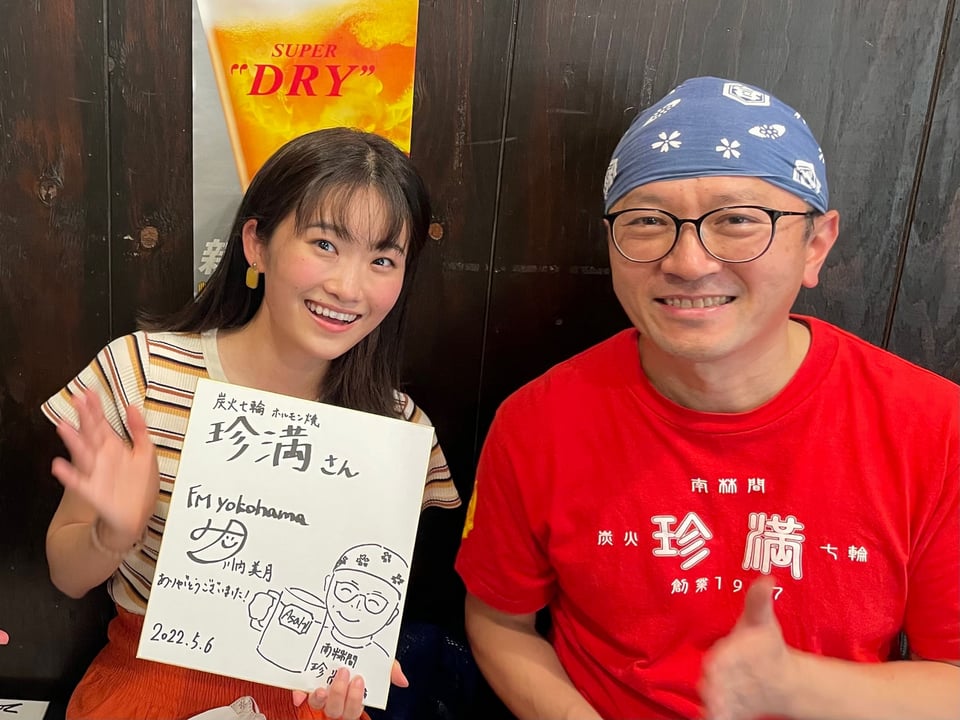 SUPER
“DRY”
炭火七輪 ホルモン焼
珍満さん
FM yokohama
川内美月
ありがとうございました!
2022.5.6
Asahi
南林間
珍
南林間
炭火 珍満 七輪